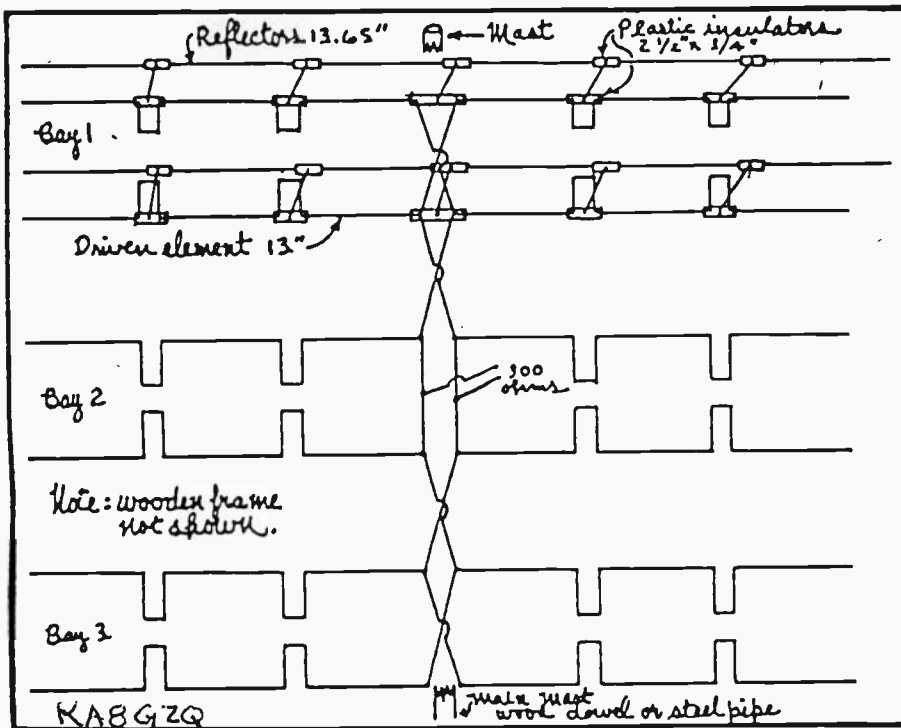 Reflectors 13.65"
Mast
Plastic insulators
2 1/2" x 3/4"
Bay 1
Driven element 13"
300
ohms
Bay 2
Note: wooden frame
not shown.
Bay 3
KA8GZQ
Main mast
wood dowel or steel pipe